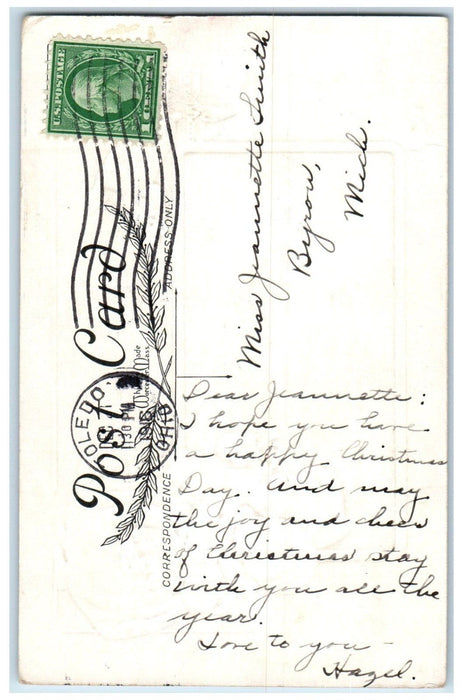 U.S. POSTAGE
1 CENT 1
Post Card
TOLEDO,
30 PM
1915
OHIO
Made
ADDRESS ONLY
CORRESPONDENCE
Miss Jeannette Smith
Byron,
Mich.
Dear Jeannette:
I hope you have
a happy Christmas
Day. And may
the joy and cheer
of Christmas stay
with you all the
year.
Love to you –
Hazel.